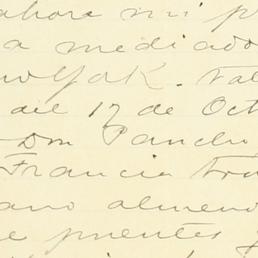 ahora mi p
a mediado
w York. Val
del 17 de Oct
Don Pancho
Francia tra
ano almeno
e puentes y